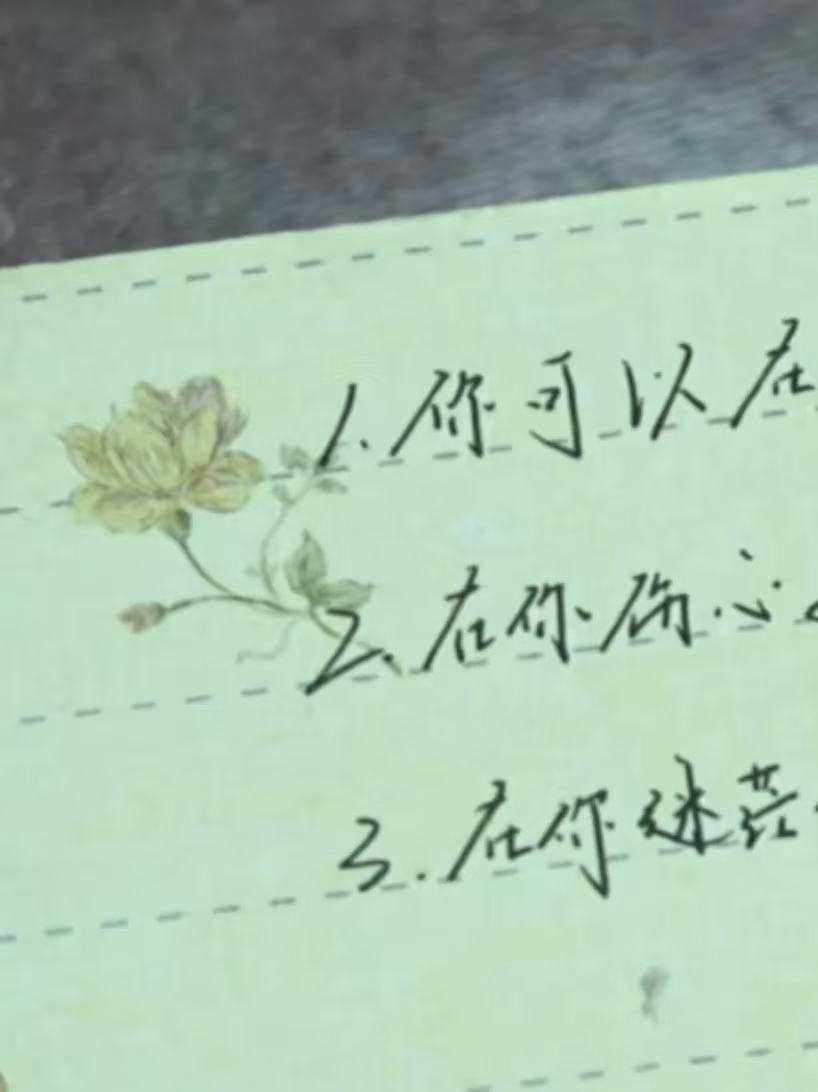 1.你可以在
2.在你伤心
3.在你迷茫